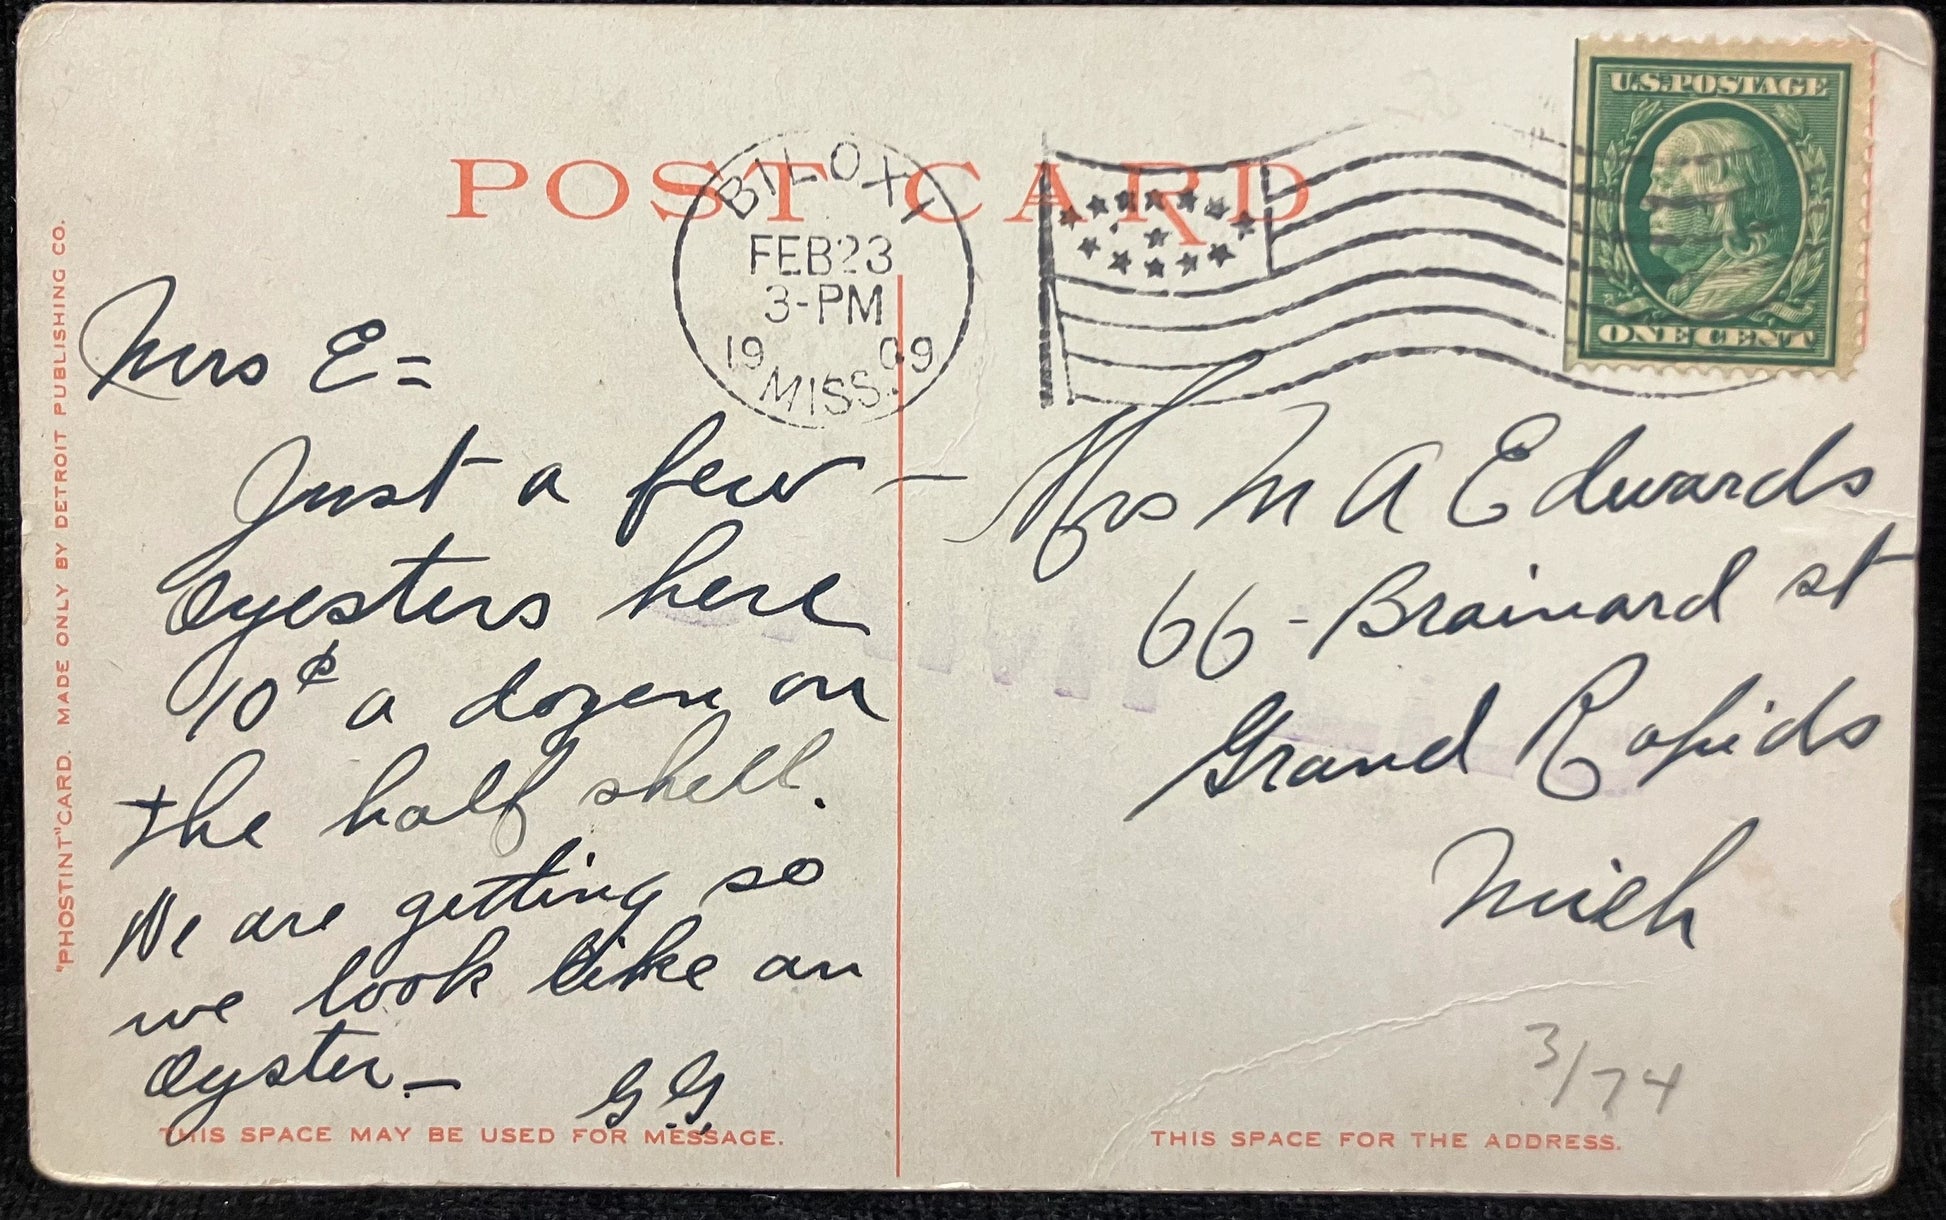 POST CARD
BILOXI
FEB 23
3-PM
1909
MISS.
U.S. POSTAGE
ONE CENT
"PHOSTINT" CARD. MADE ONLY BY DETROIT PUBLISHING CO.
Mrs E =
Just a few —
Oyesters here
10¢ a dozen on
the half shell.
We are getting so
we look like an
Oyster —
G.G.
THIS SPACE MAY BE USED FOR MESSAGE.
Mrs M A Edwards
66 - Brainard st
Grand Rapids
Mich
3/74
THIS SPACE FOR THE ADDRESS.